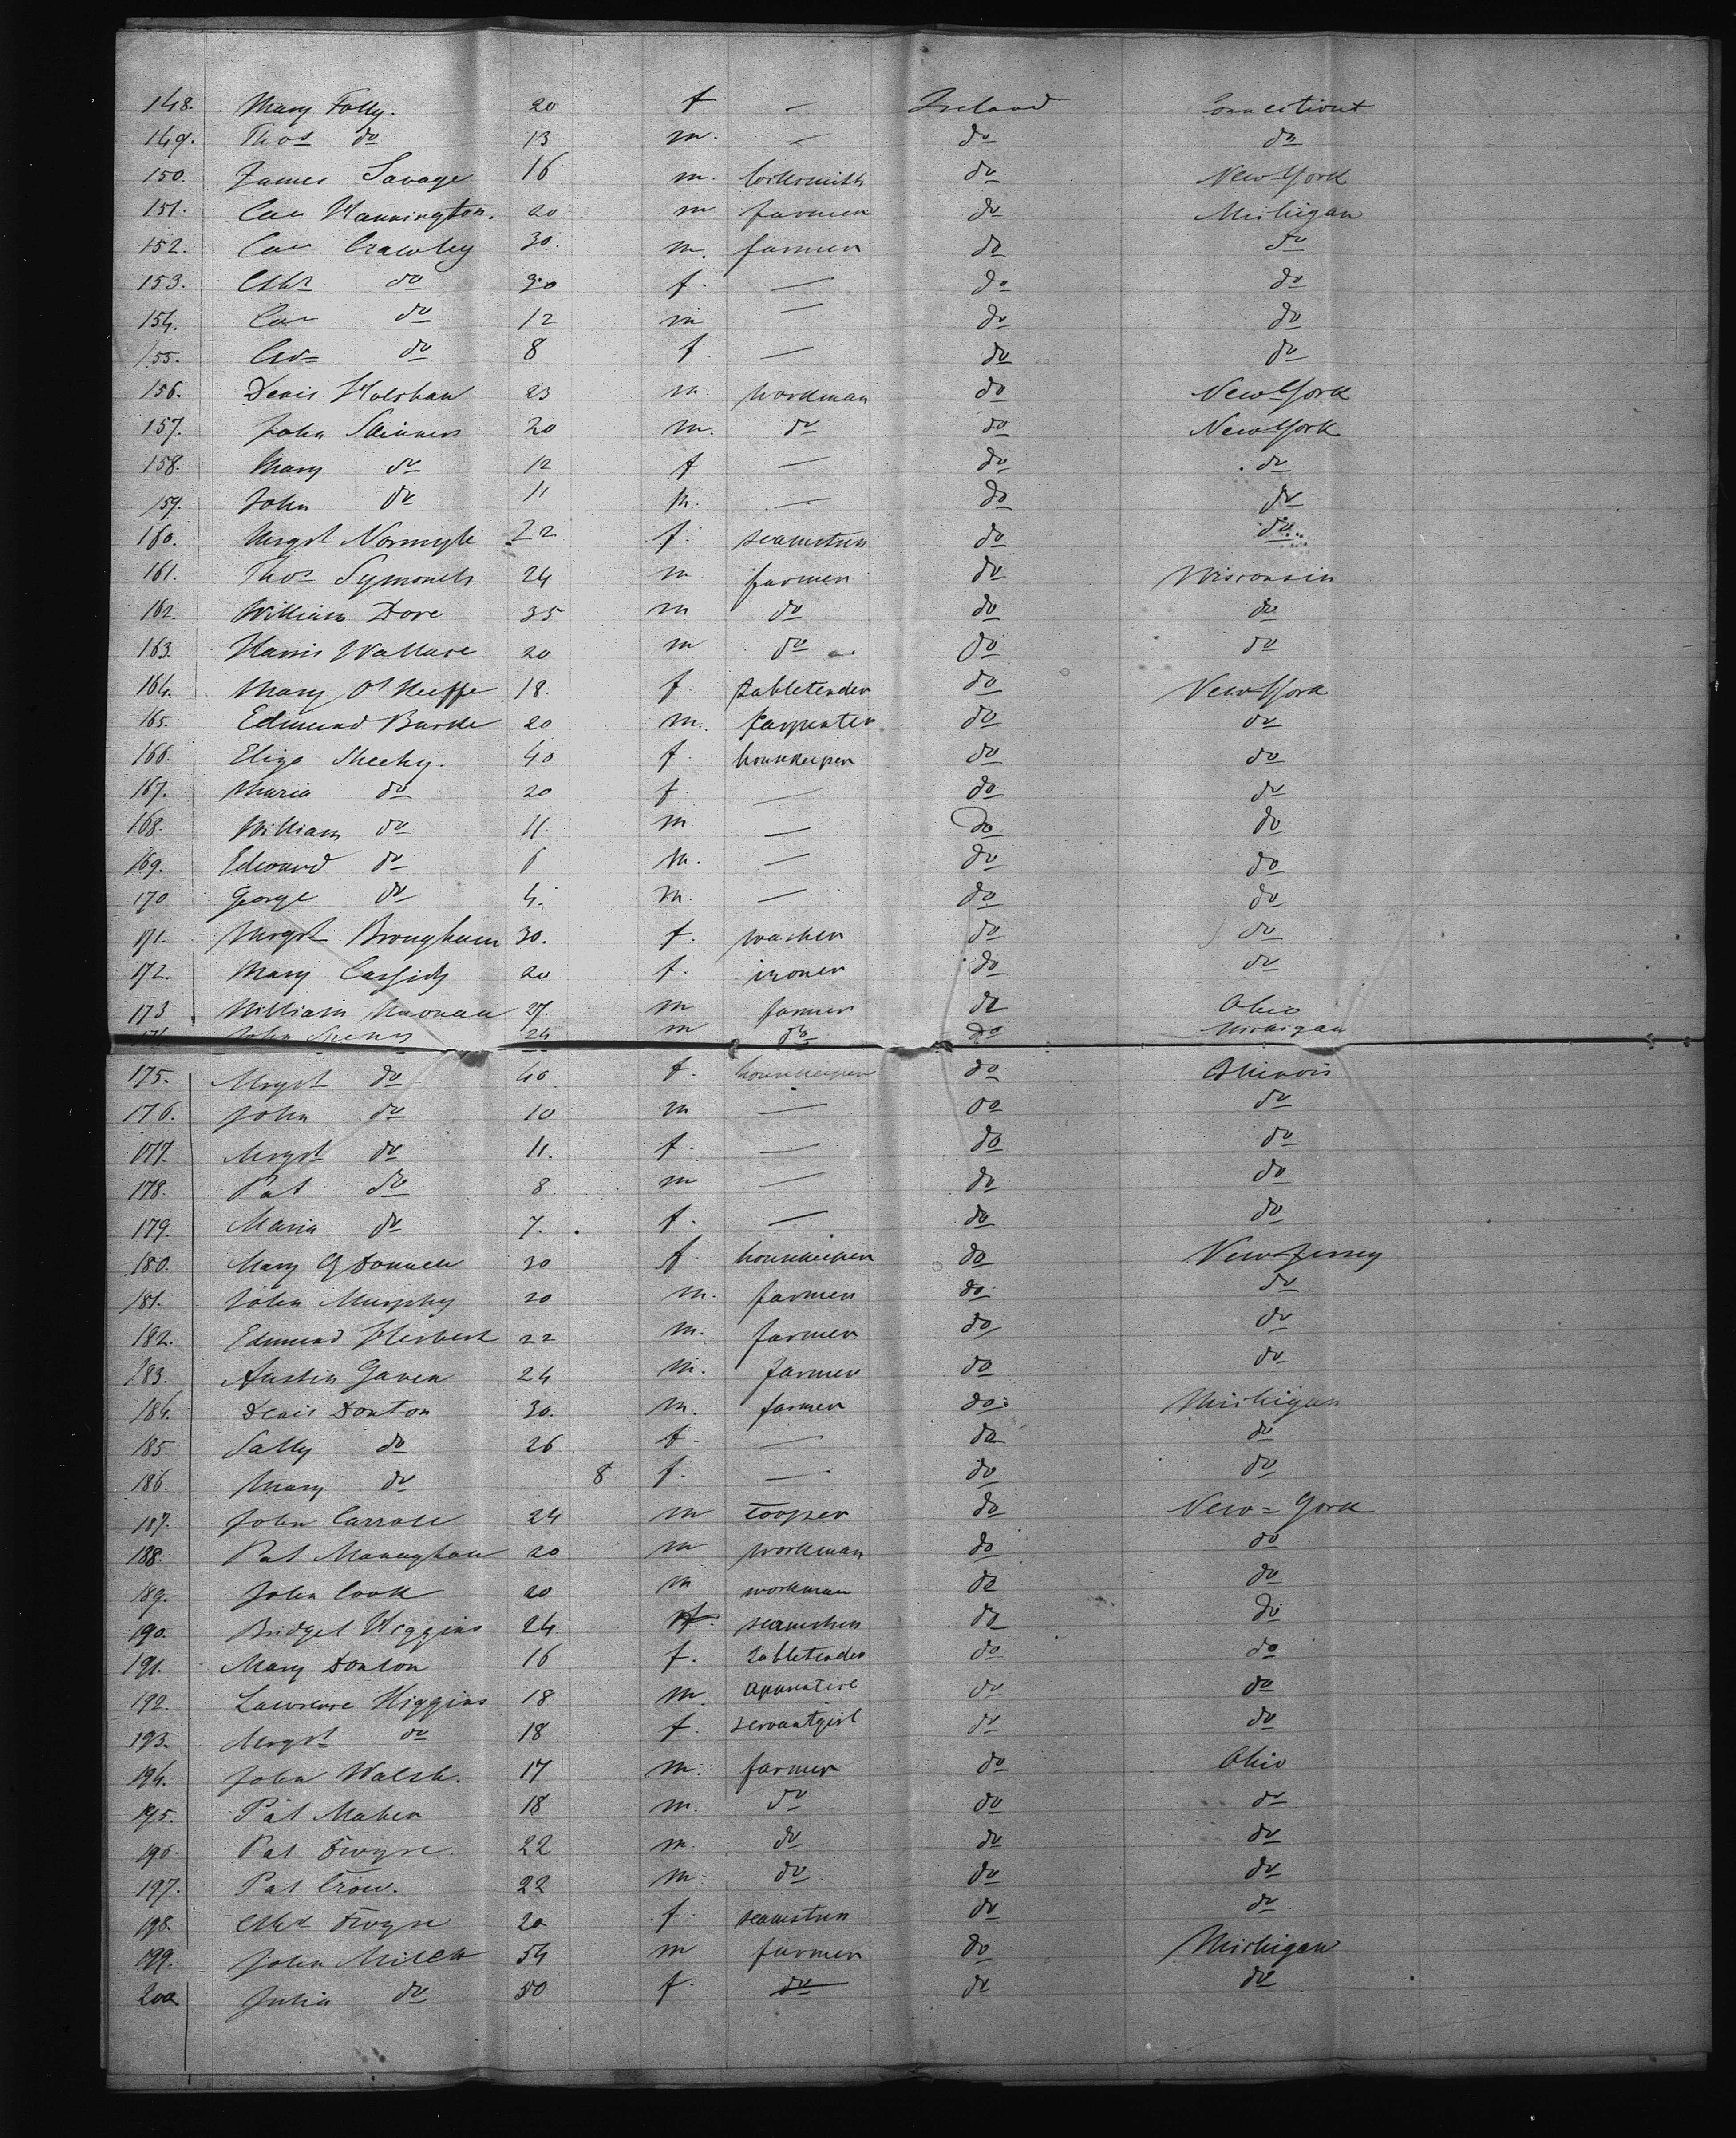 148. Mary Folly. 20 f — Ireland Connecticut
149. Thos do 13 m. — do do
150. James Savage 16 m. locksmith do New York
151. Cae Hannington. 20 m farmer do Michigan
152. Cae Crawley 30. m. farmer do do
153. do 30 f. — do do
154. Cae do 12 m — do do
155. do 8 f. — do do
156. Denis Holohan 23 m. workman do New York
157. John Skinners 20 m. do do New York
158. Mary do 12 f — do do
159. John do 11 m. — do do
160. Mrgst Normyle 22 f. seamstress do do
161. Thos Symonds 24 m farmer do Wisconsin
162. William Dore 35 m do do do
163. Harris Wallace 20 m do do do
164. Mary O'Keeffe 18. f. tabletender do New York
165. Edmund Burke 20 m. carpenter do do
166. Eliza Sheehy. 40 f. housekeeper do do
167. Maria do 20 f. — do do
168. William do 11. m — do do
169. Edward do 6 m. — do do
170 George do 4. m. — do do
171. Mrgst Brougham 30. f. washer do do
172. Mary Cassidy 20 f. ironer do do
173 William Noonan 27. m farmer do Ohio
John 24 m do do Michigan
175. Mrgst do 40 f. housekeeper do Illinois
176. John do 10 m — do do
177. Mrgst do 11. f. — do do
178. Pat do 8 m — do do
179. Maria do 7. f. — do do
180. Mary O'Donnell 30 f. housekeeper do New Jersey
181. John Murphy 20 m. farmer do do
182. Edmund Herbert 22 m. farmer do do
183. Austin Gaven 24 m. farmer do do
184. Denis Donton 30. m. farmer do Michigan
185 Sally do 26 f. — do do
186. Mary do 8 f. — do do
187. John Carroll 24 m cooper do New-York
188. Pat Managhan 20 m workman do do
189. John Cook 20 m workman do do
190. Bridget Higgins 24 f. seamstress do do
191. Mary Donlon 16 f. tabletender do do
192. Lawrence Higgins 18 m. do do
193. Mrgst do 18 f. servantgirl do do
194. John Walsh. 17 m. farmer do Ohio
195. Pat Maher 18 m. do do do
196. Pat Dwyre. 22 m. do do do
197. Pat Crow. 22 m. do do do
198. Dwyre 20 f. seamstress do do
199. John Milck 54 m farmer do Michigan
200 Julia do 50 f. do do do